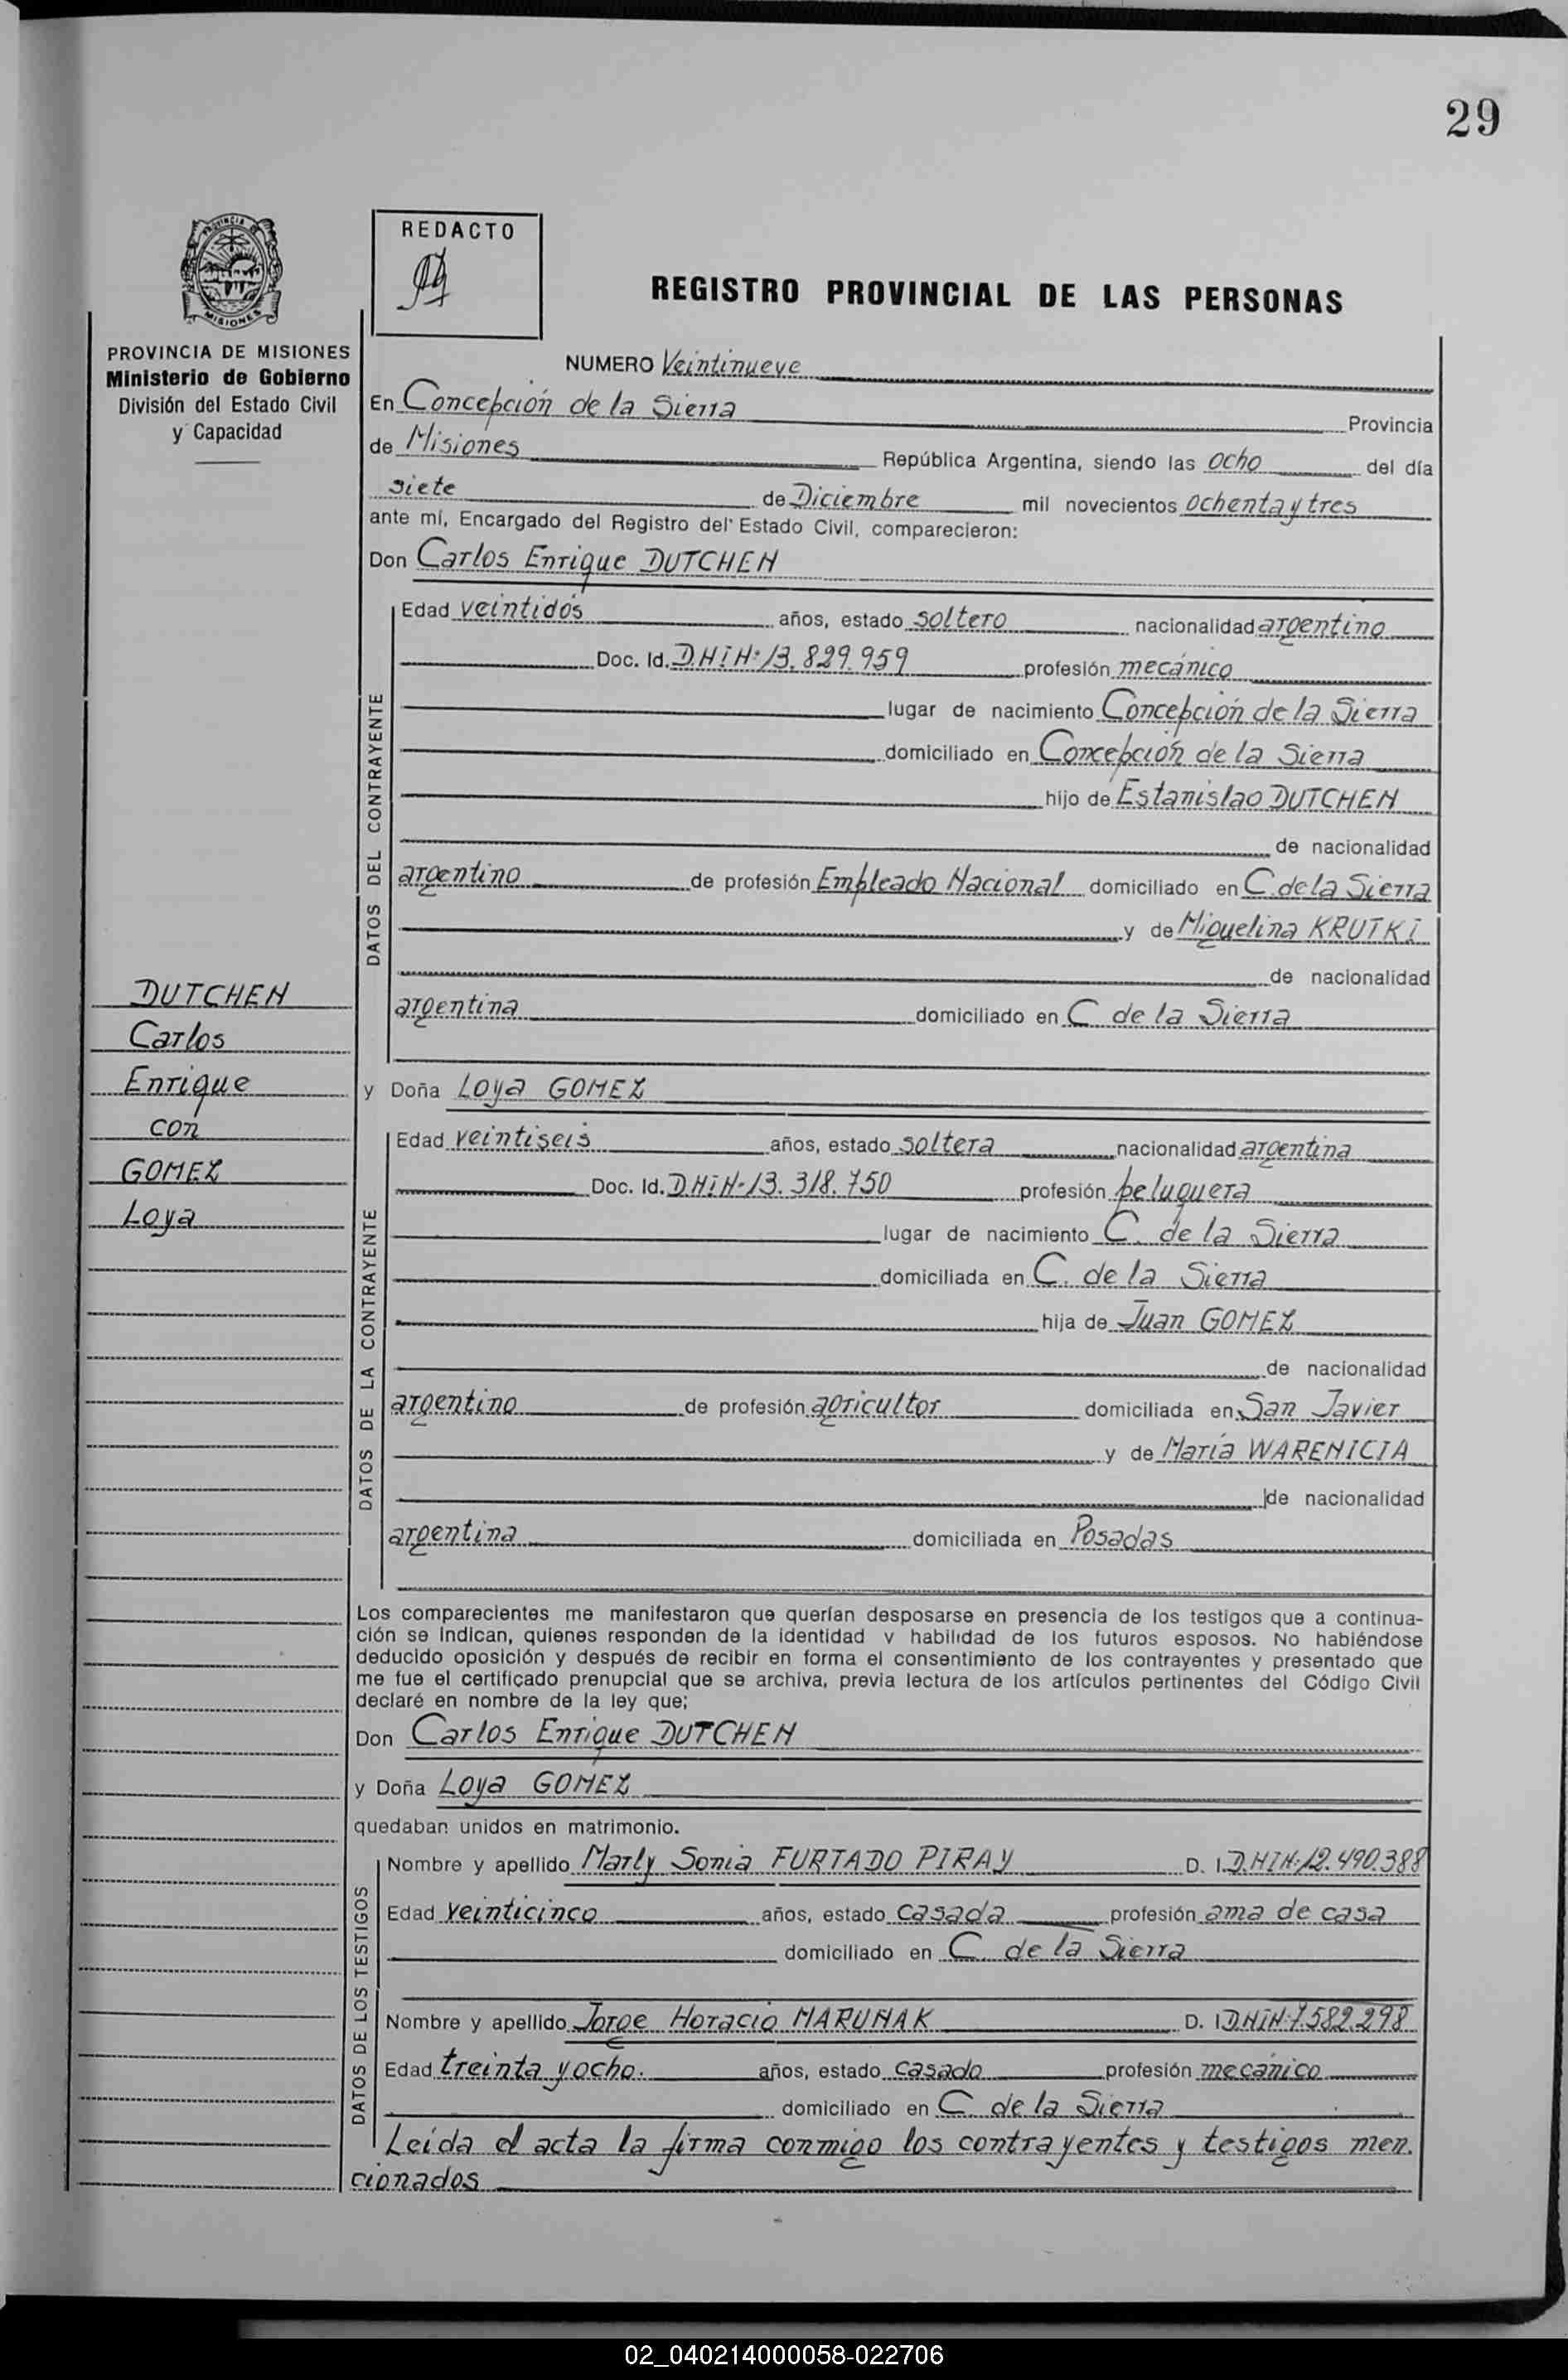 29
PROVINCIA DE
MISIONES
REDACTO
REGISTRO PROVINCIAL DE LAS PERSONAS
PROVINCIA DE MISIONES
Ministerio de Gobierno
División del Estado Civil
y Capacidad
NUMERO Veintinueve
En Concepción de la Sierra Provincia
de Misiones República Argentina, siendo las ocho del día
siete de Diciembre mil novecientos ochenta y tres
ante mí, Encargado del Registro del Estado Civil, comparecieron:
Don Carlos Enrique DUTCHEN
DATOS DEL CONTRAYENTE
Edad veintidós años, estado soltero nacionalidad argentino
Doc. Id. D.N.I.Nº 13.829.959 profesión mecánico
lugar de nacimiento Concepción de la Sierra
domiciliado en Concepción de la Sierra
hijo de Estanislao DUTCHEN
de nacionalidad
argentino de profesión Empleado Nacional domiciliado en C. de la Sierra
y de Miguelina KRUTKI
de nacionalidad
argentina domiciliado en C de la Sierra
DUTCHEN
Carlos
Enrique
con
GOMEZ
Loya
y Doña Loya GOMEZ
DATOS DE LA CONTRAYENTE
Edad veintiseis años, estado soltera nacionalidad argentina
Doc. Id. D.N.I.Nº 13.318.750 profesión peluquera
lugar de nacimiento C. de la Sierra
domiciliada en C. de la Sierra
hija de Juan GOMEZ
de nacionalidad
argentino de profesión agricultor domiciliada en San Javier
y de María WARENICIA
de nacionalidad
argentina domiciliada en Posadas
Los comparecientes me manifestaron que querían desposarse en presencia de los testigos que a continua-
ción se indican, quienes responden de la identidad y habilidad de los futuros esposos. No habiéndose
deducido oposición y después de recibir en forma el consentimiento de los contrayentes y presentado que
me fue el certificado prenupcial que se archiva, previa lectura de los artículos pertinentes del Código Civil
declaré en nombre de la ley que;
Don Carlos Enrique DUTCHEN
y Doña Loya GOMEZ
quedaban unidos en matrimonio.
DATOS DE LOS TESTIGOS
Nombre y apellido Marly Sonia FURTADO PIRAY D. I. D.N.I.Nº 12.490.388
Edad veinticinco años, estado casada profesión ama de casa
domiciliado en C. de la Sierra
Nombre y apellido Jorge Horacio MARUÑAK D. I. D.N.I.Nº 7.582.298
Edad treinta y ocho. años, estado casado profesión mecánico
domiciliado en C. de la Sierra
Leída el acta la firma conmigo los contrayentes y testigos men.
cionados
02_040214000058-022706